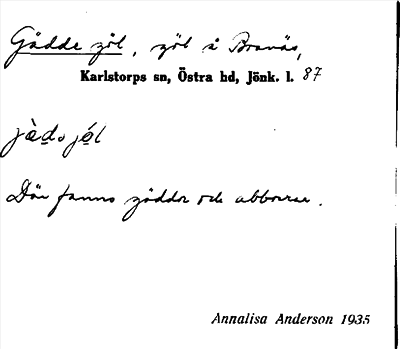 Gädde göl, göl å Branäs,
Karlstorps sn, Östra hd, Jönk. l. 87
jàdo jól
Där fanns gäddor och abborrar.
Annalisa Anderson 1935